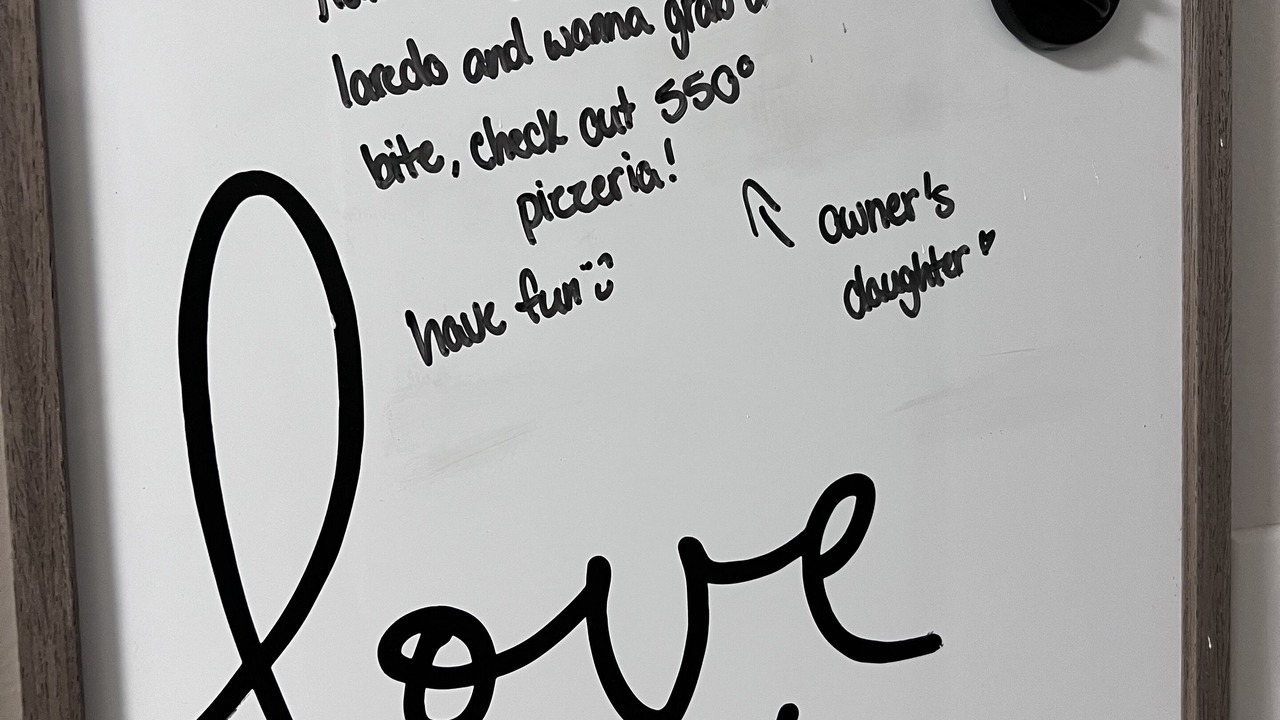 laredo and wanna grab a
bite, check out 550°
pizzeria!
owner's
daughter ♥
have fun :)
love